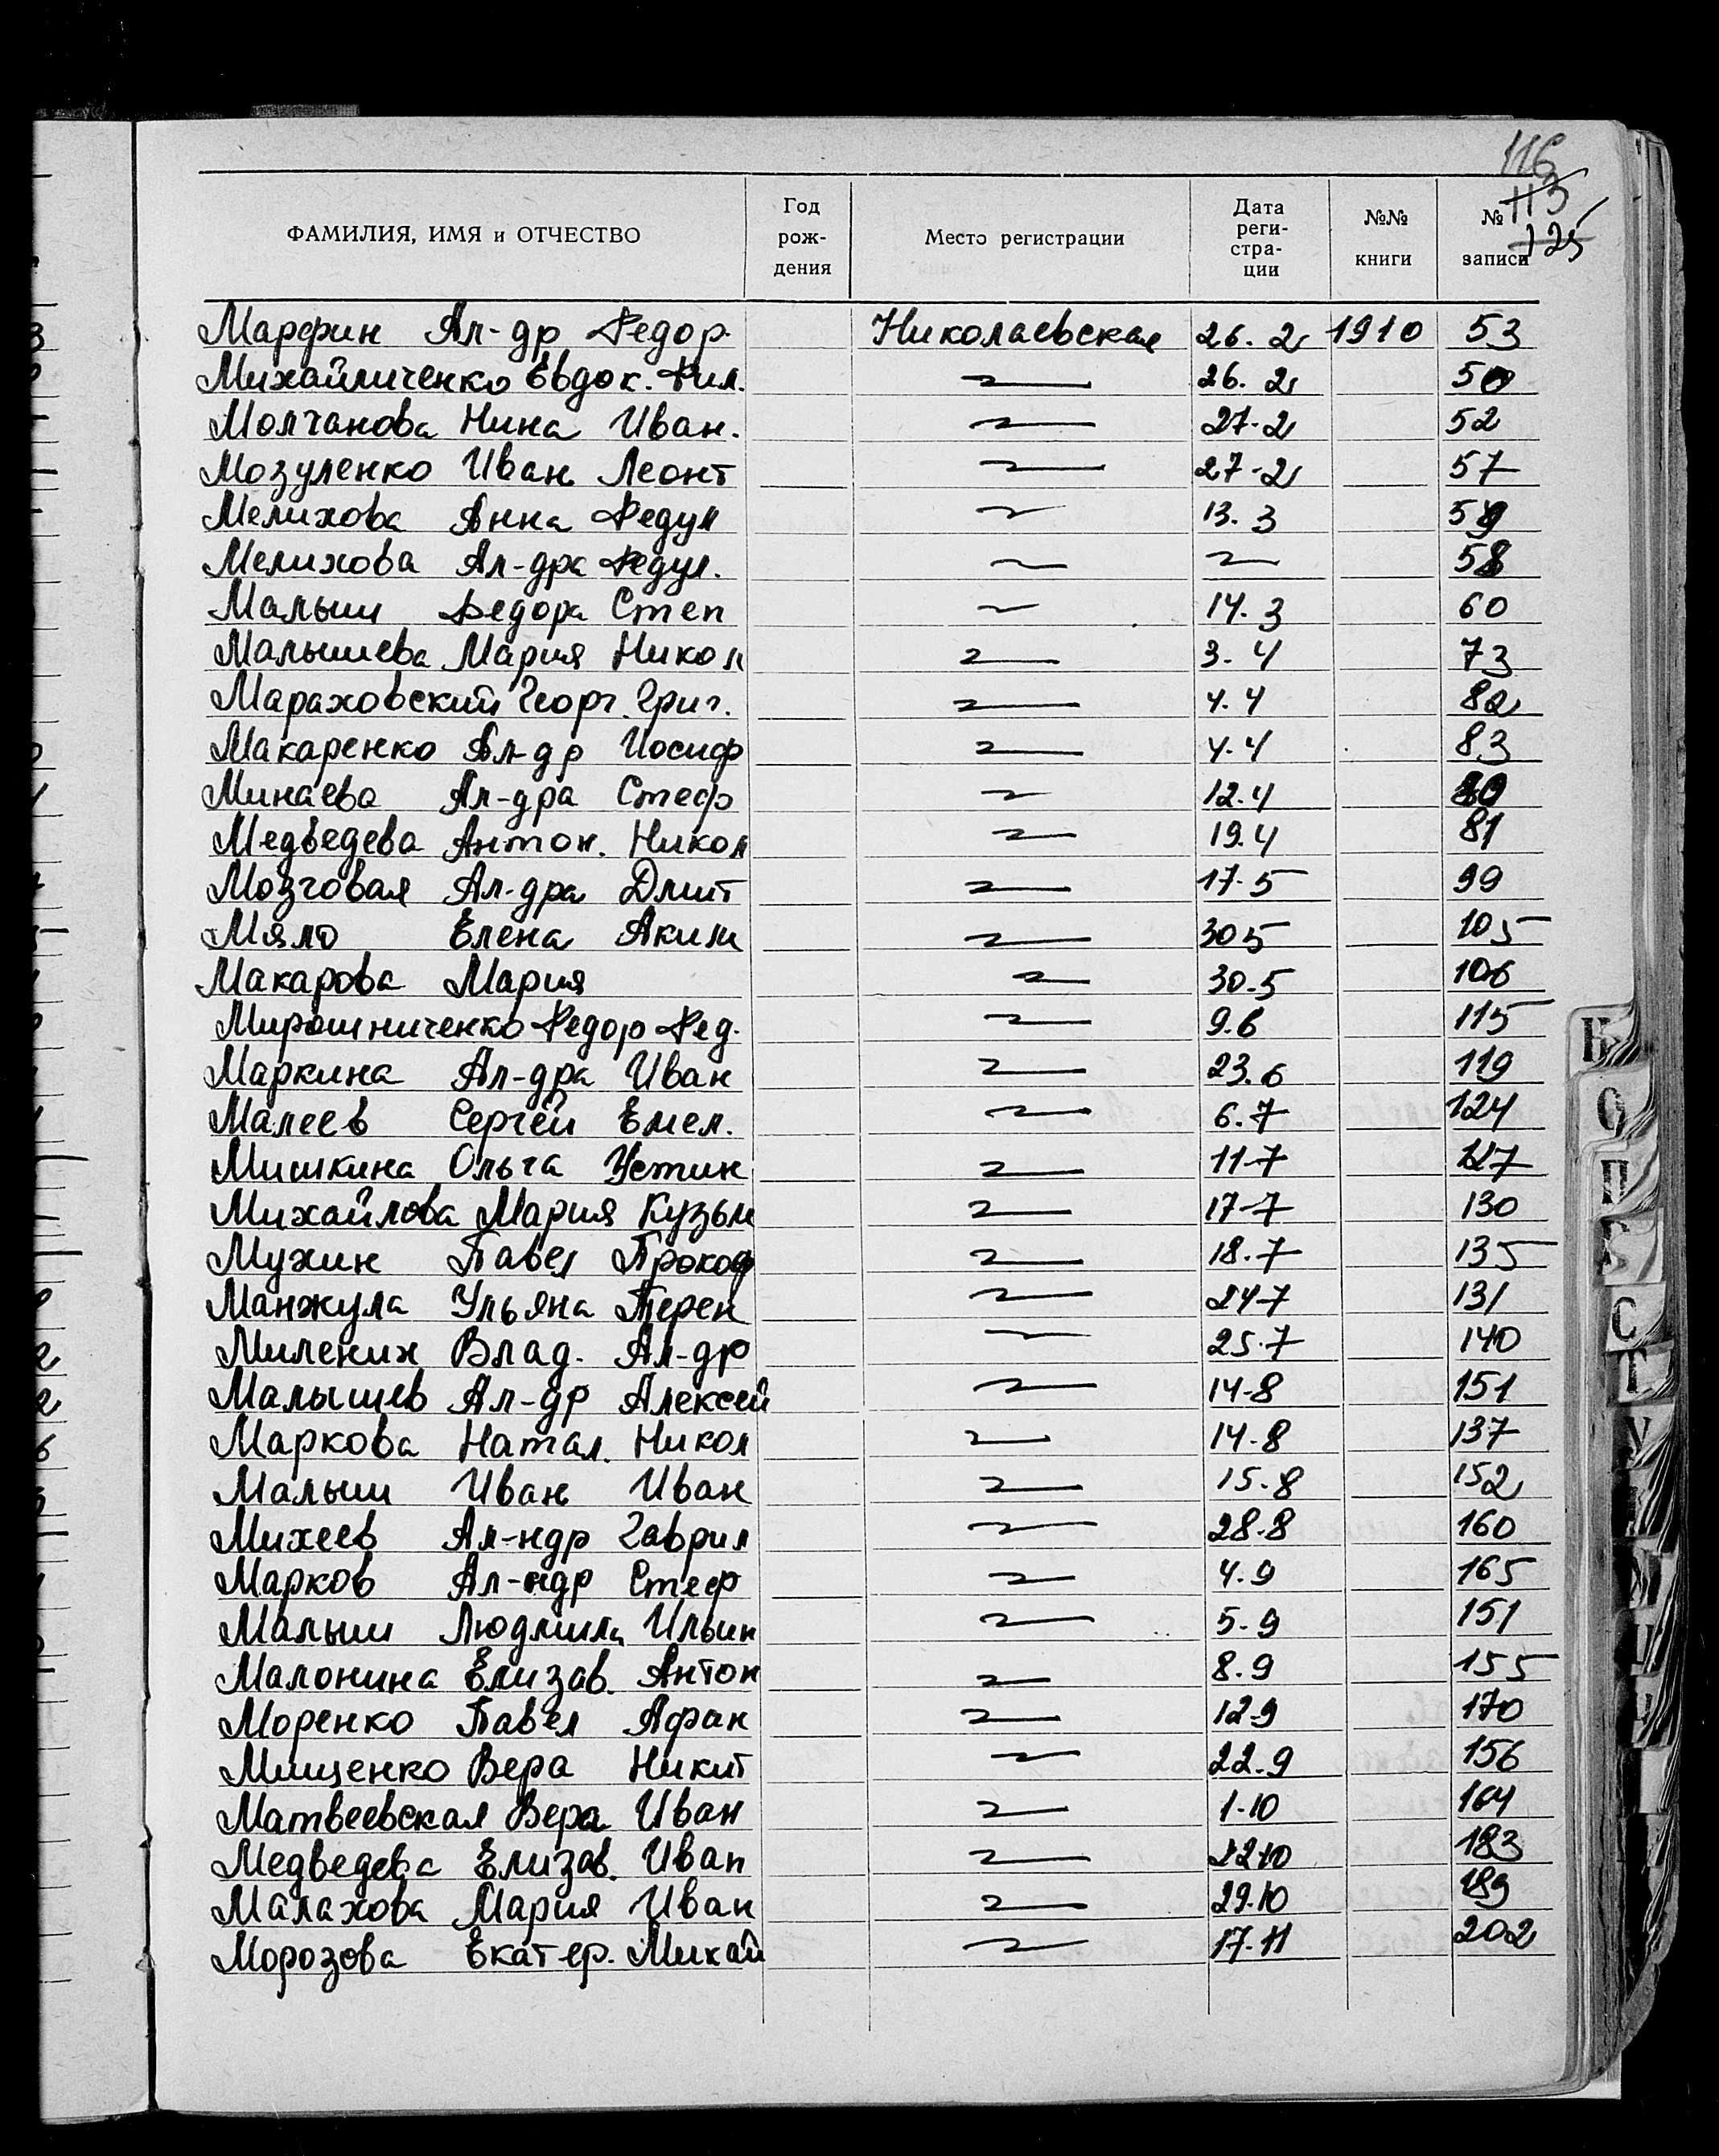 116
113
125
ФАМИЛИЯ, ИМЯ и ОТЧЕСТВО Год рож- дения Место регистрации Дата реги- стра- ции №№ книги № записи
Марфин Ал-др Федор. Николаевская 26. 2 1910 53
Михайличенко Евдок. Фил. 26. 2 50
Молчанова Нина Иван. 27-2 52
Мозуленко Иван Леонт 27-2 57
Мелихова Анна Федул 13. 3 59
Мелихова Ал-дра Федул. 58
Малыш Федора Степ 14. 3 60
Малышева Мария Никол 3. 4 73
Мараховский Георг. Григ. 4. 4 82
Макаренко Ал-др Иосиф 4. 4 83
Минаева Ал-дра Стеф 12. 4 80
Медведева Антон. Никол 19. 4 81
Мозговая Ал-дра Дмит 17-5 99
Мяло Елена Аким 30 5 105
Макарова Мария 30-5 106
Мирошниченко Федор Фед. 9.6 115
Маркина Ал-дра Иван 23.6 119
Малеев Сергей Емел. 6.7 124
Мишкина Ольга Устин 11-7 127
Михайлова Мария Кузьм 17-7 130
Мухин Павел Прокоф 18.7 135
Манжула Ульяна Терен 24-7 131
Миленин Влад. Ал-др 25.7 140
Малышев Ал-др Алексей 14-8 151
Маркова Натал. Никол 14-8 137
Малыш Иван Иван 15-8 152
Михеев Ал-ндр Гаврил 28-8 160
Марков Ал-ндр Стеф 4.9 165
Малыш Людмила Ильин 5-9 151
Малонина Елизав. Антон 8.9 155
Моренко Павел Афан 12-9 170
Мищенко Вера Никит 22-9 156
Матвеевская Вера Иван 1-10 164
Медведева Елизав. Иван 22-10 183
Малахова Мария Иван 29-10 189
Морозова Екатер. Михай 17-11 202
Н
О
П
Р
С
Т
У